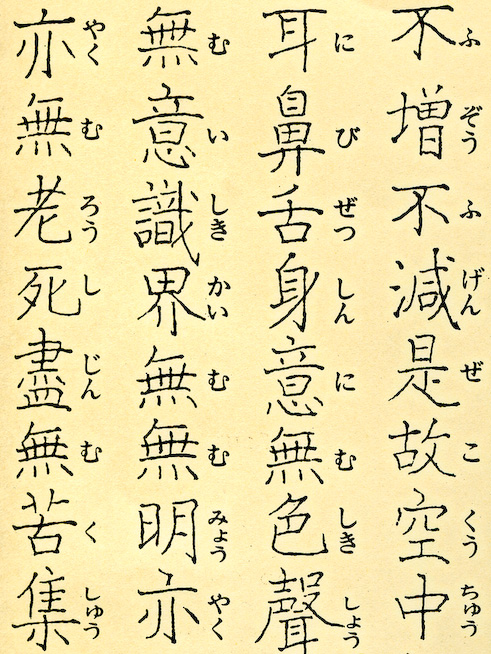 不増不減是故空中
ふ ぞう ふ げん ぜ こ くう ちゅう
耳鼻舌身意無色聲
に び ぜつ しん に む しき しょう
無意識界無無明亦
む い しき かい む む みょう やく
亦無老死盡無苦集
やく む ろう し じん む く しゅう